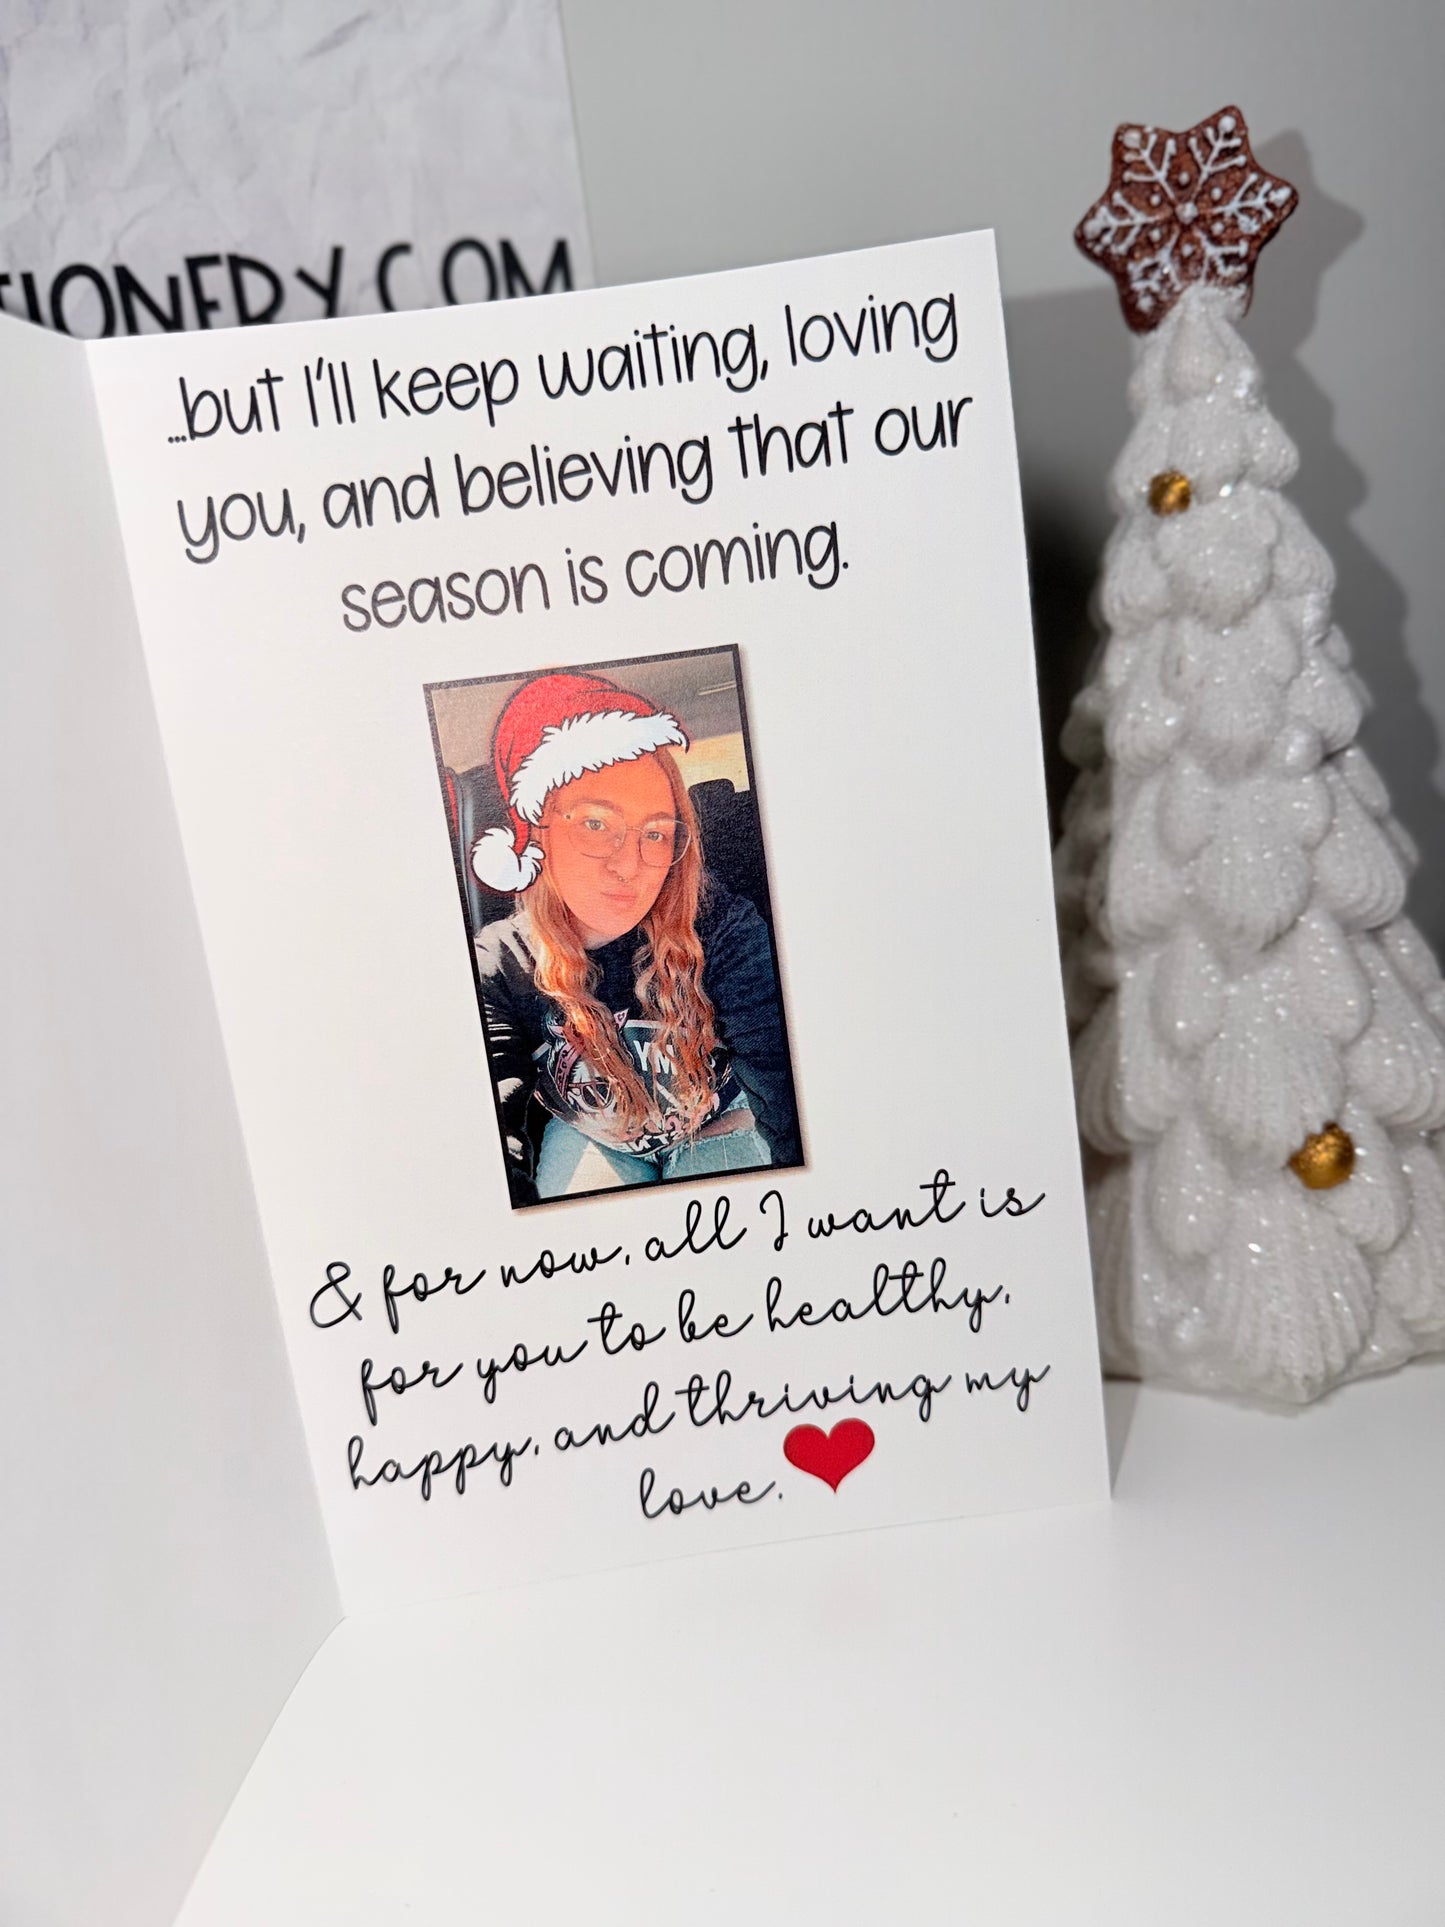 TIONERY.COM
...but I'll keep waiting, loving
you, and believing that our
season is coming.
YM
& for now, all I want is
for you to be healthy,
happy, and thriving my
love.